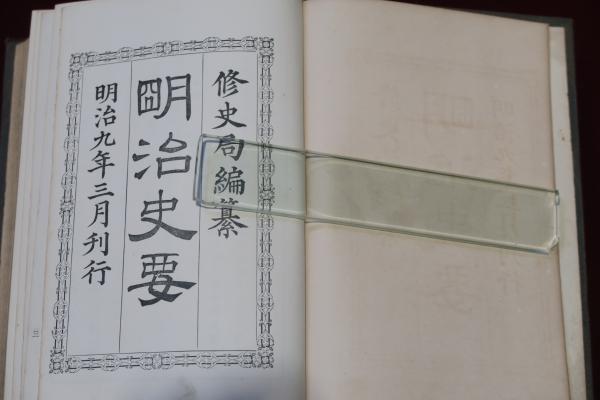 修史局編纂
明治史要
明治九年三月刊行
三